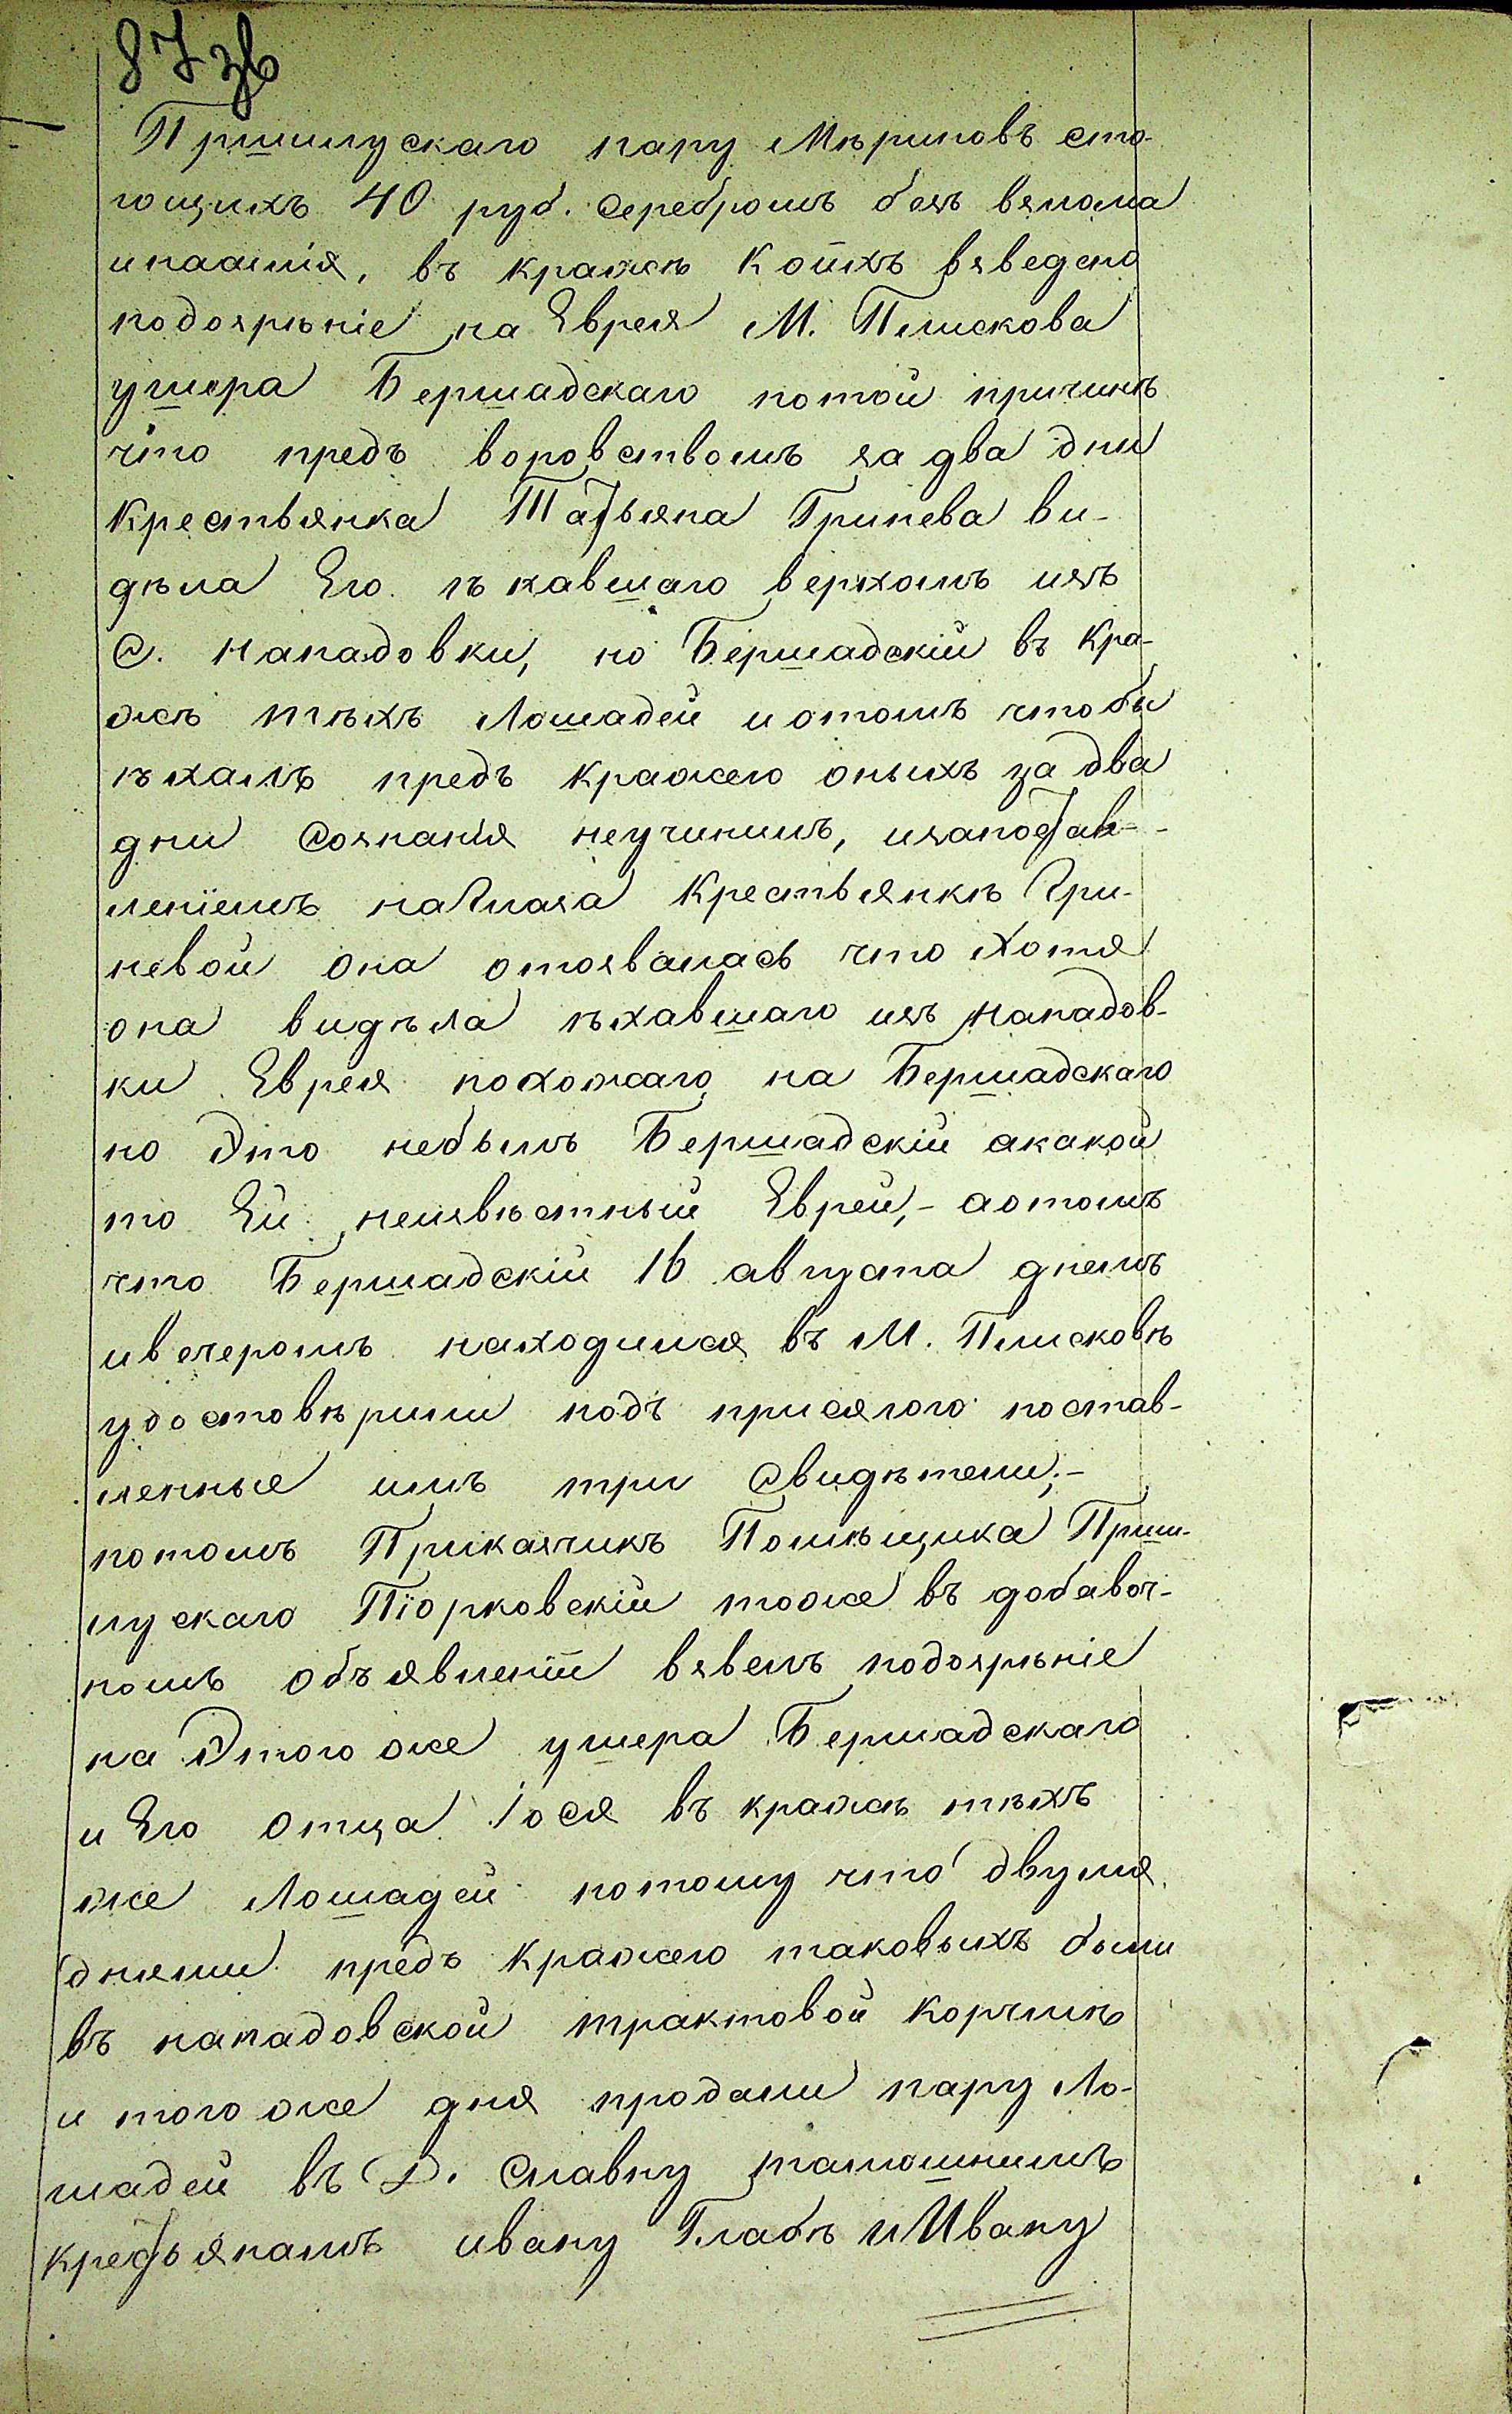 87 зв
Пршилускаго пару Мѣриновъ сто-
ющихъ 40 руб. серебромъ безъ взлома
инасилія, въ кражѣ коихъ взведено
подозрѣніе на Еврея М. Плискова
ушера Бершадскаго потой причинѣ
что предъ воровствомъ за два дни
крестьянка Татьяна Гринева ви-
дѣла Его ѣхавшаго верхомъ изъ
С. Нападовки, но Бершадскій въ кра-
жѣ тѣхъ Лошадей иотомъ чтобы
ѣхалъ предъ кражею оныхъ за два
дни сознанія неучинилъ, изапостав-
леніемъ наглаза крестьянкѣ Гри-
невой она отозвалась что хотя
она видѣла ѣхавшаго изъ Нападов-
ки Еврея похожаго на Бершадскаго
но Это небылъ Бершадскій акакой
то Ей неизвѣстный Еврей,- аотомъ
что Бершадскій 16 августа днемъ
ивечеромъ находился въ М. Плисковѣ
удостовѣрили подъ присягою постав-
ленные имъ три свидѣтели;-
потомъ Приказчикъ Помѣщика Приш-
лускаго Піорковскій тоже въ добавоч-
номъ объявленіи взвелъ подозрѣніе
на Этого же ушера Бершадскаго
и Его отца Іося въ кражѣ тѣхъ
же Лошадей потому что двумя
днями предъ кражею таковыхъ были
въ нападовской трактовой корчмѣ
и того же дня продали пару Ло-
шадей въ Д. Славну тамошнимъ
крестьянамъ ивану Глабѣ иИвану